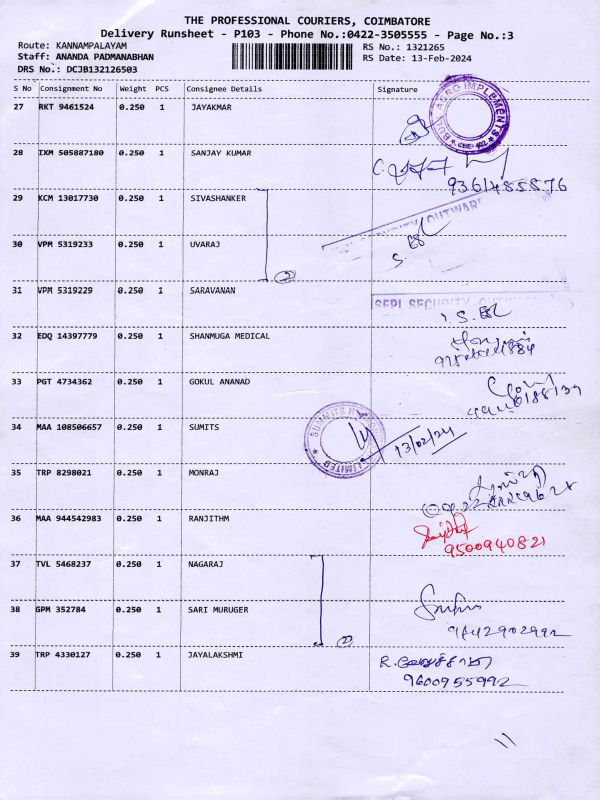 THE PROFESSIONAL COURIERS, COIMBATORE
Delivery Runsheet - P103 - Phone No.:0422-3505555 - Page No.:3
Route: KANNAMPALAYAM
RS No.: 1321265
Staff: ANANDA PADMANABHAN
RS Date: 13-Feb-2024
DRS No.: DCJB132126503
S No Consignment No Weight PCS Consignee Details Signature
27 RKT 9461524 0.250 1 JAYAKMAR
BULL AGRO IMPLEMENTS
28 IXM 505887180 0.250 1 SANJAY KUMAR
9361485876
29 KCM 13017730 0.250 1 SIVASHANKER
30 VPM 5319233 0.250 1 UVARAJ
2
31 VPM 5319229 0.250 1 SARAVANAN
SEPL SECURITY OUTWARD
32 EDQ 14397779 0.250 1 SHANMUGA MEDICAL
33 PGT 4734362 0.250 1 GOKUL ANANAD
34 MAA 108506657 0.250 1 SUMITS
13/02/24
35 TRP 8298021 0.250 1 MONRAJ
36 MAA 944542983 0.250 1 RANJITHM
9500940821
37 TVL 5468237 0.250 1 NAGARAJ
38 GPM 352784 0.250 1 SARI MURUGER
2
9842902992
39 TRP 4330127 0.250 1 JAYALAKSHMI
9600955992